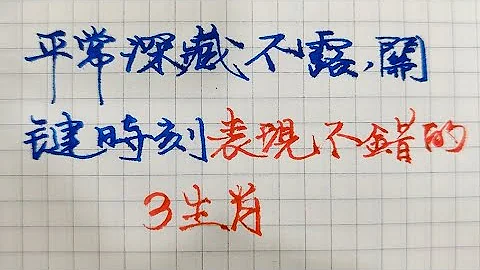 平常深藏不露,關
键時刻表現不錯的
3生肖